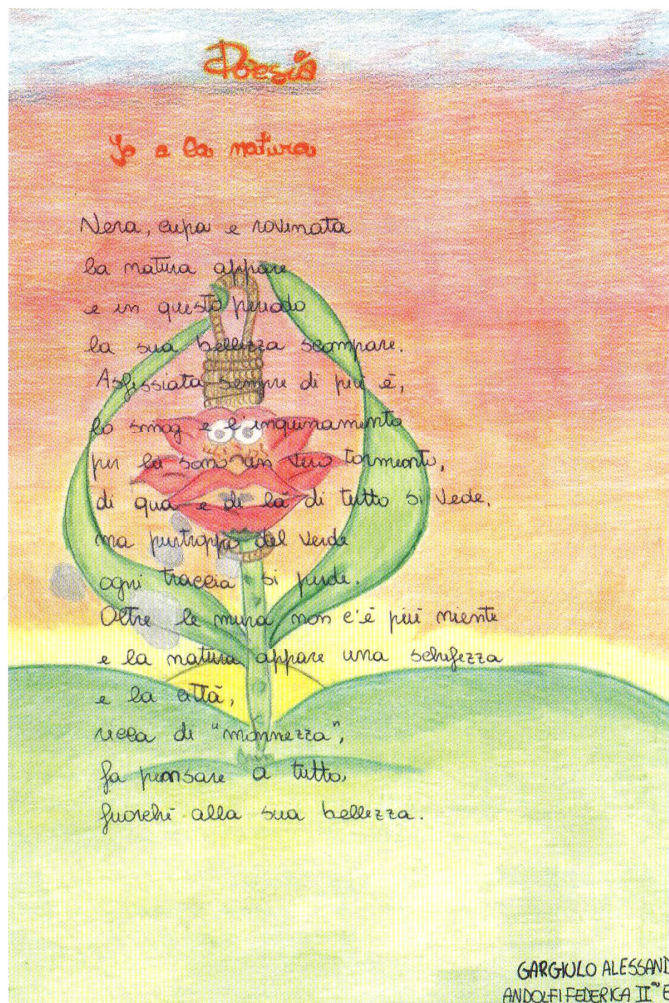 Poesia
Io e la natura
Nera, cupa e rovinata
la natura appare
e in questo periodo
la sua bellezza scompare.
Asfissiata sempre di più è,
lo smog e l'inquinamento
per lei sono un vero tormento,
di qua e di là di tutto si vede,
ma purtroppo del verde
ogni traccia si perde.
Oltre le mura non c'è più niente
e la natura appare una schifezza
e la città,
ricca di "monnezza",
fa pensare a tutto,
fuorché alla sua bellezza.
GARGIULO ALESSAND
ANDOLFI FEDERICA II E